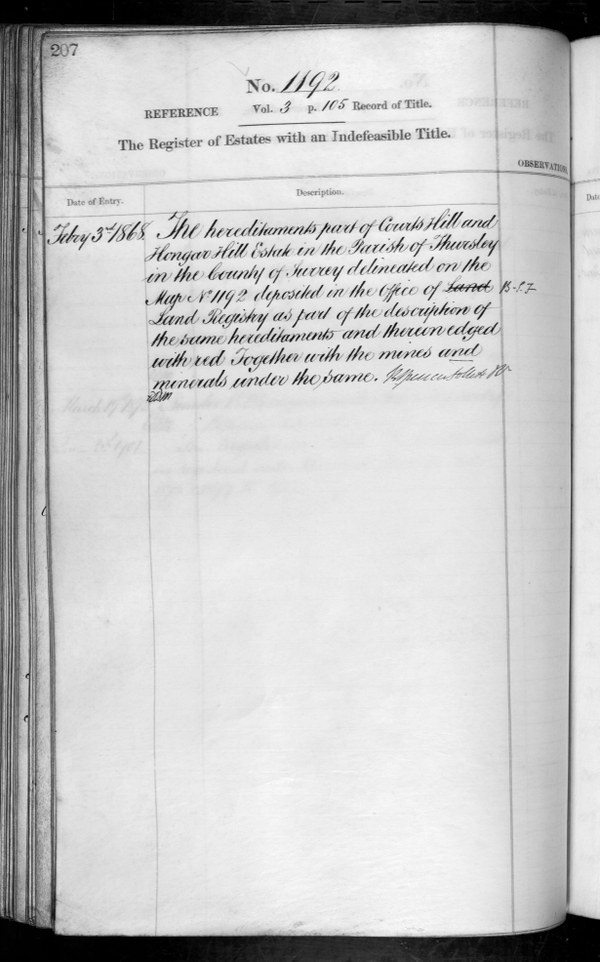 207
No. 1192
REFERENCE Vol. 3 p. 105 Record of Title.
The Register of Estates with an Indefeasible Title.
OBSERVATION
Date of Entry.
Description.
Febry 3rd 1868.
The hereditaments part of Courts Hill and
Hongar Hill Estate in the Parish of Thursley
in the County of Surrey delineated on the
Map No 1192 deposited in the Office of Land
Land Registry as part of the description of
the same hereditaments and thereon edged
with red Together with the mines and
minerals under the same.